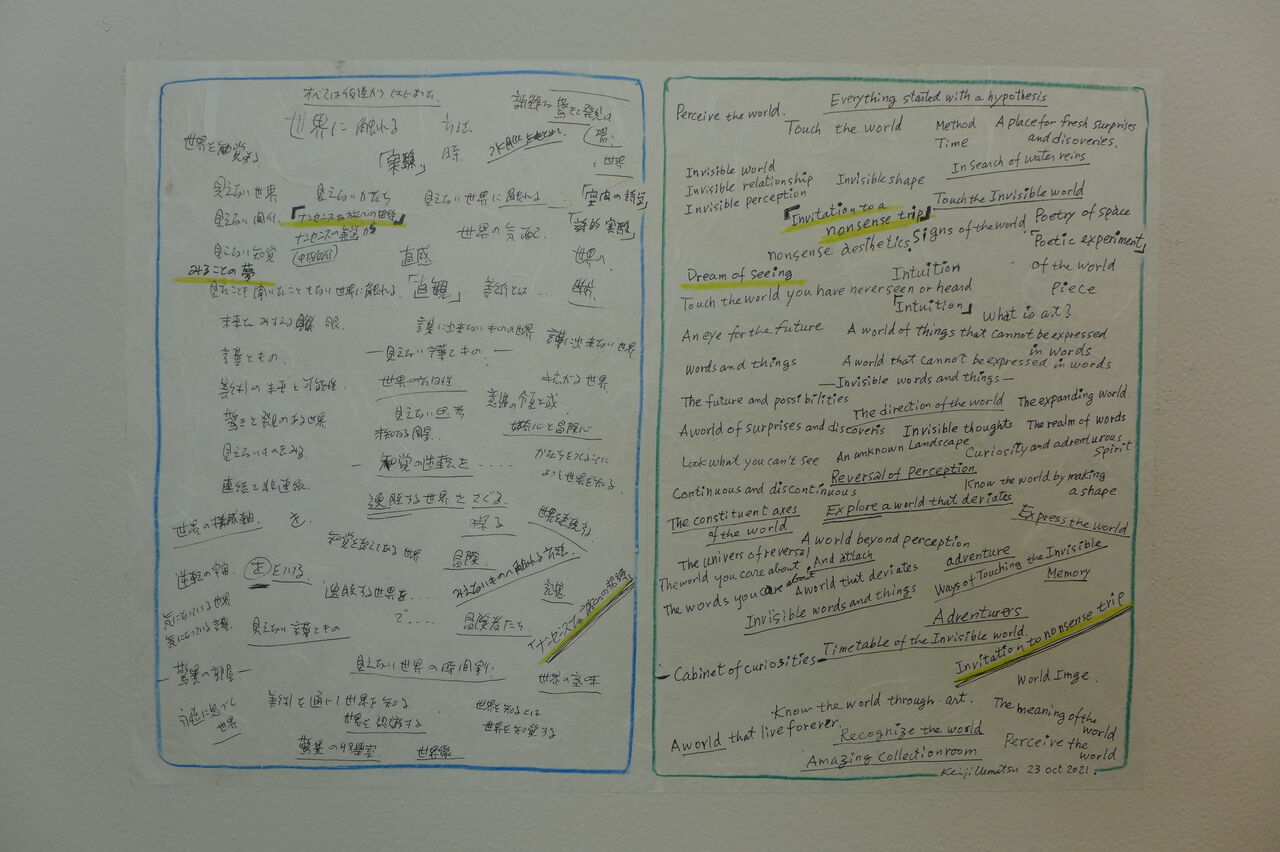 すべては仮説からはじまった
世界に触れる 方法
世界を知覚する
「実験」 時
世界
見えない世界 見えないかたち 見えない世界に触れる
見えない関係 「ナンセンスな旅への招待」 「詩的実験」
見えない知覚 直感 世界の
みることの夢
見たことも聞いたこともない世界に触れる 「直観」 美術とは…
未来をみすえる 眼 言葉に出来ないものの世界 言葉に出来ない世界
言葉ともの ―見えない言葉ともの―
美術の未来と可能性 世界の方向性 拡がる世界
驚きと発見のある世界 見えない思考
未知なる風景 好奇心と冒険心
見えないものをみる
―知覚の逆転を…… かたちをつくることによって世界を知る
連続と非連続
逸脱する世界をさぐる
世界の構成軸 を 探る
知覚を超えてある世界 冒険
逆転の宇宙 みえないものへ触れる方法
逸脱する世界を… 記憶
気になっている世界
気になっている言葉
見えない言葉ともの 冒険者たち
「ナンセンスな旅への招待」
―驚異の部屋― 見えない世界の時間割 世界の意味
永遠に息づく世界
美術を通して世界を知る 世界を知るとは
世界を認識する 世界を知覚する
世界像
Everything started with a hypothesis
Perceive the world.
Touch the world
Method
Time
A place for fresh surprises
and discoveries.
In Search of water veins
Invisible world
Invisible relationship
Invisible perception
Invisible shape
Touch the Invisible world
「Invitation to a
nonsense trip」
nonsense aesthetics.
Signs of the world
Poetry of space
「Poetic experiment」
Dream of seeing
Intuition
of the world
Piece
Touch the world you have never seen or heard
「Intuition」
What is art?
An eye for the future
A world of things that cannot be expressed
in words
words and things
A world that cannot be expressed in words
—Invisible words and things—
The future and possibilities
The direction of the world
The expanding world.
A world of surprises and discoveris
Invisible thoughts
The realm of words
Look what you can't see
An unknown Landscape
Curiosity and adventurous
spirit
Reversal of Perception
Continuous and discontinuous
Know the world by making
a shape
The constituent axes
of the world
Explore a world that deviates
Express the world
A world beyond perception
The univers of reversal
The world you care about. And attach
adventure
The words you care about
A world that deviates
Ways of Touching the Invisible
Memory
Invisible words and things
Adventurers
Timetable of the Invisible world.
Invitation to nonsense trip
- Cabinet of curiosities -
World Imge.
Know the world through art.
The meaning of the
world
A world that live forever.
Recognize the world
Perceive the
world
Amazing Collectionroom
Keiji Uematsu 23 oct 2021.